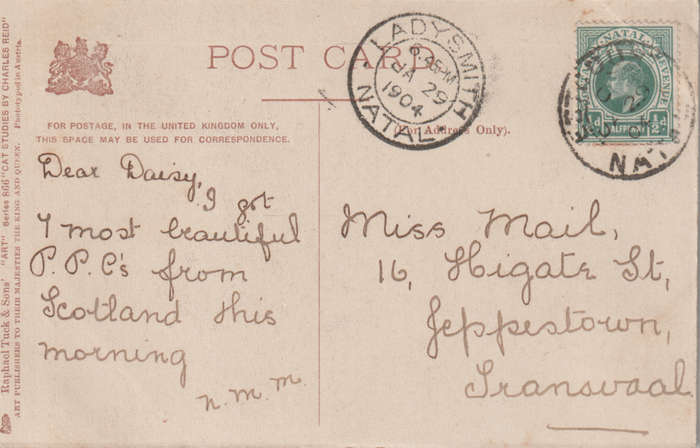 POST CARD
FOR POSTAGE, IN THE UNITED KINGDOM ONLY,
THIS SPACE MAY BE USED FOR CORRESPONDENCE.
(For Address Only).
LADYSMITH
6.45PM
JA 29
1904
NATAL
NATAL REVENUE
½d HALFPENNY ½d
29
NAT
Dear Daisy,
I got
7 most beautiful
P.P.C's from
Scotland this
morning
N.M.M.
Miss Mail,
16, Higate St,
Jeppestown,
Transvaal
Raphael Tuck & Sons' "ART" Series 896 "CAT STUDIES BY CHARLES REID"
ART PUBLISHERS TO THEIR MAJESTIES THE KING AND QUEEN. Phototyped in Austria.